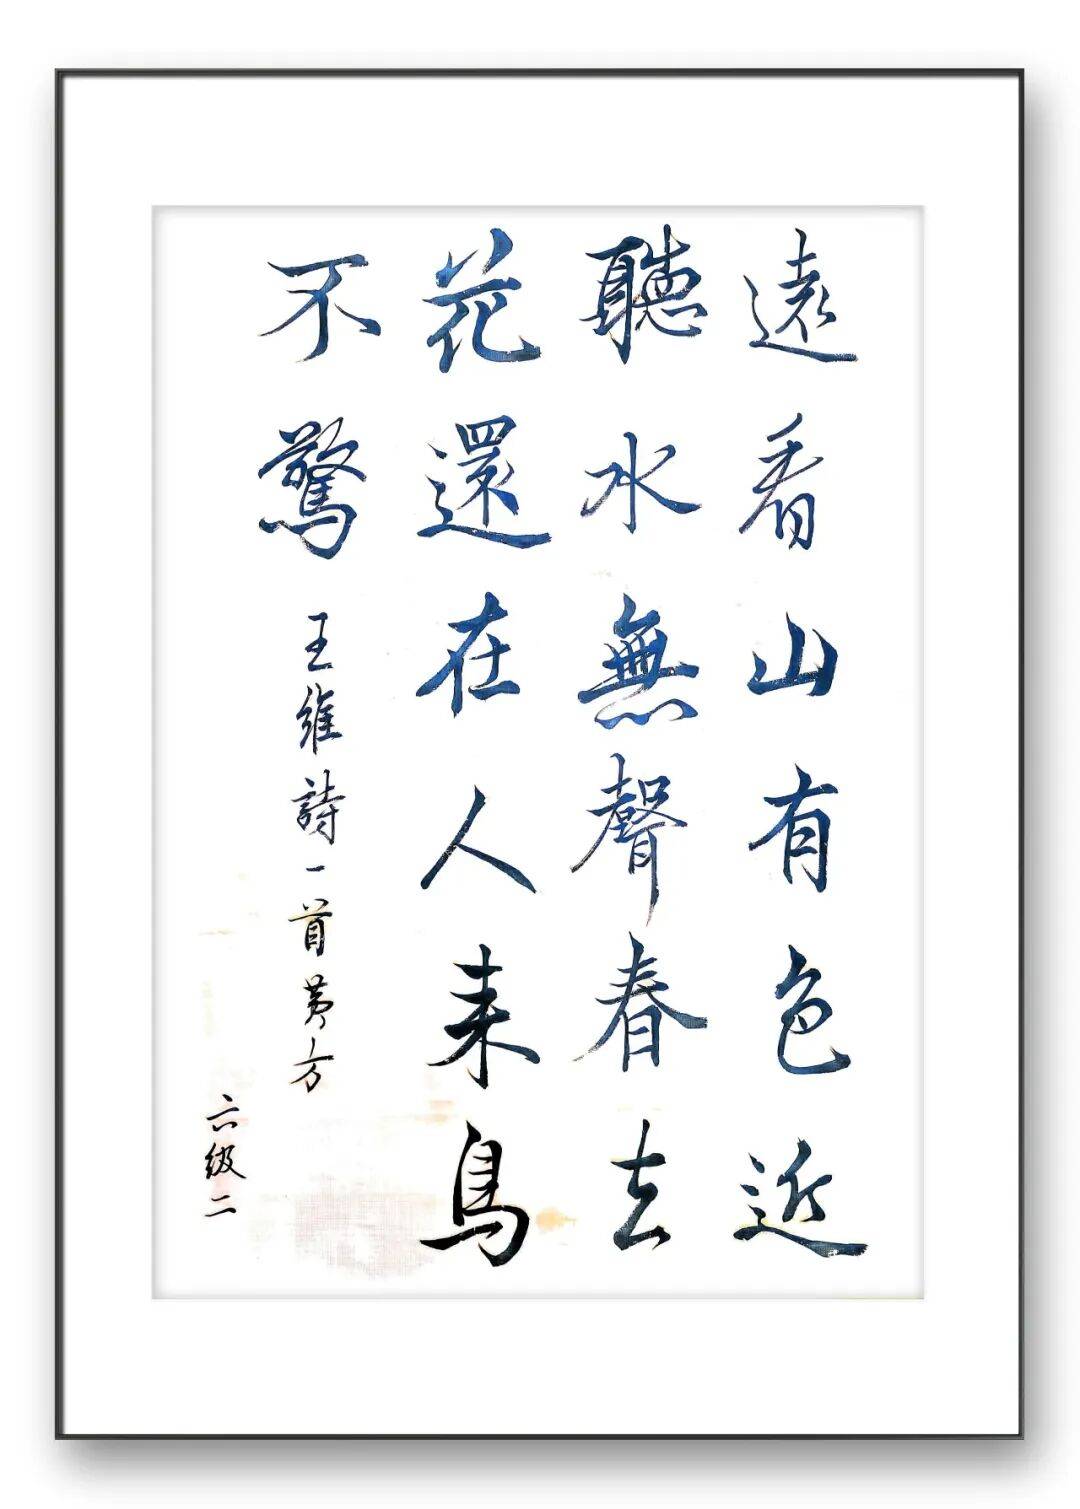 遠看山有色近
聽水無聲春去
花還在人来鳥
不驚 王維詩一首黄方
六级二